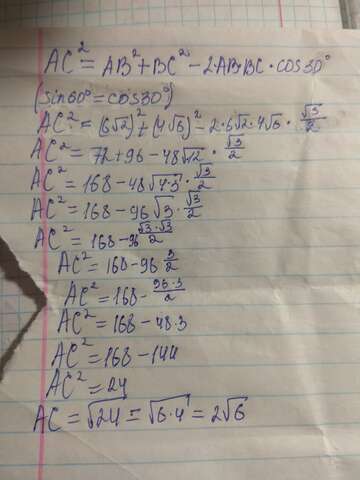 AC² = AB² + BC² - 2·AB·BC · cos30°
(sin60° = cos30°)
AC² = (6√2)² + (4√6)² - 2·6√2·4√6 · √3/2
AC² = 72 + 96 - 48√12 · √3/2
AC² = 168 - 48√4·3 · √3/2
AC² = 168 - 96√3 · √3/2
AC² = 168 - 96 √3·√3/2
AC² = 168 - 96 3/2
AC² = 168 - 96·3/2
AC² = 168 - 48·3
AC² = 168 - 144
AC² = 24
AC = √24 = √6·4 = 2√6